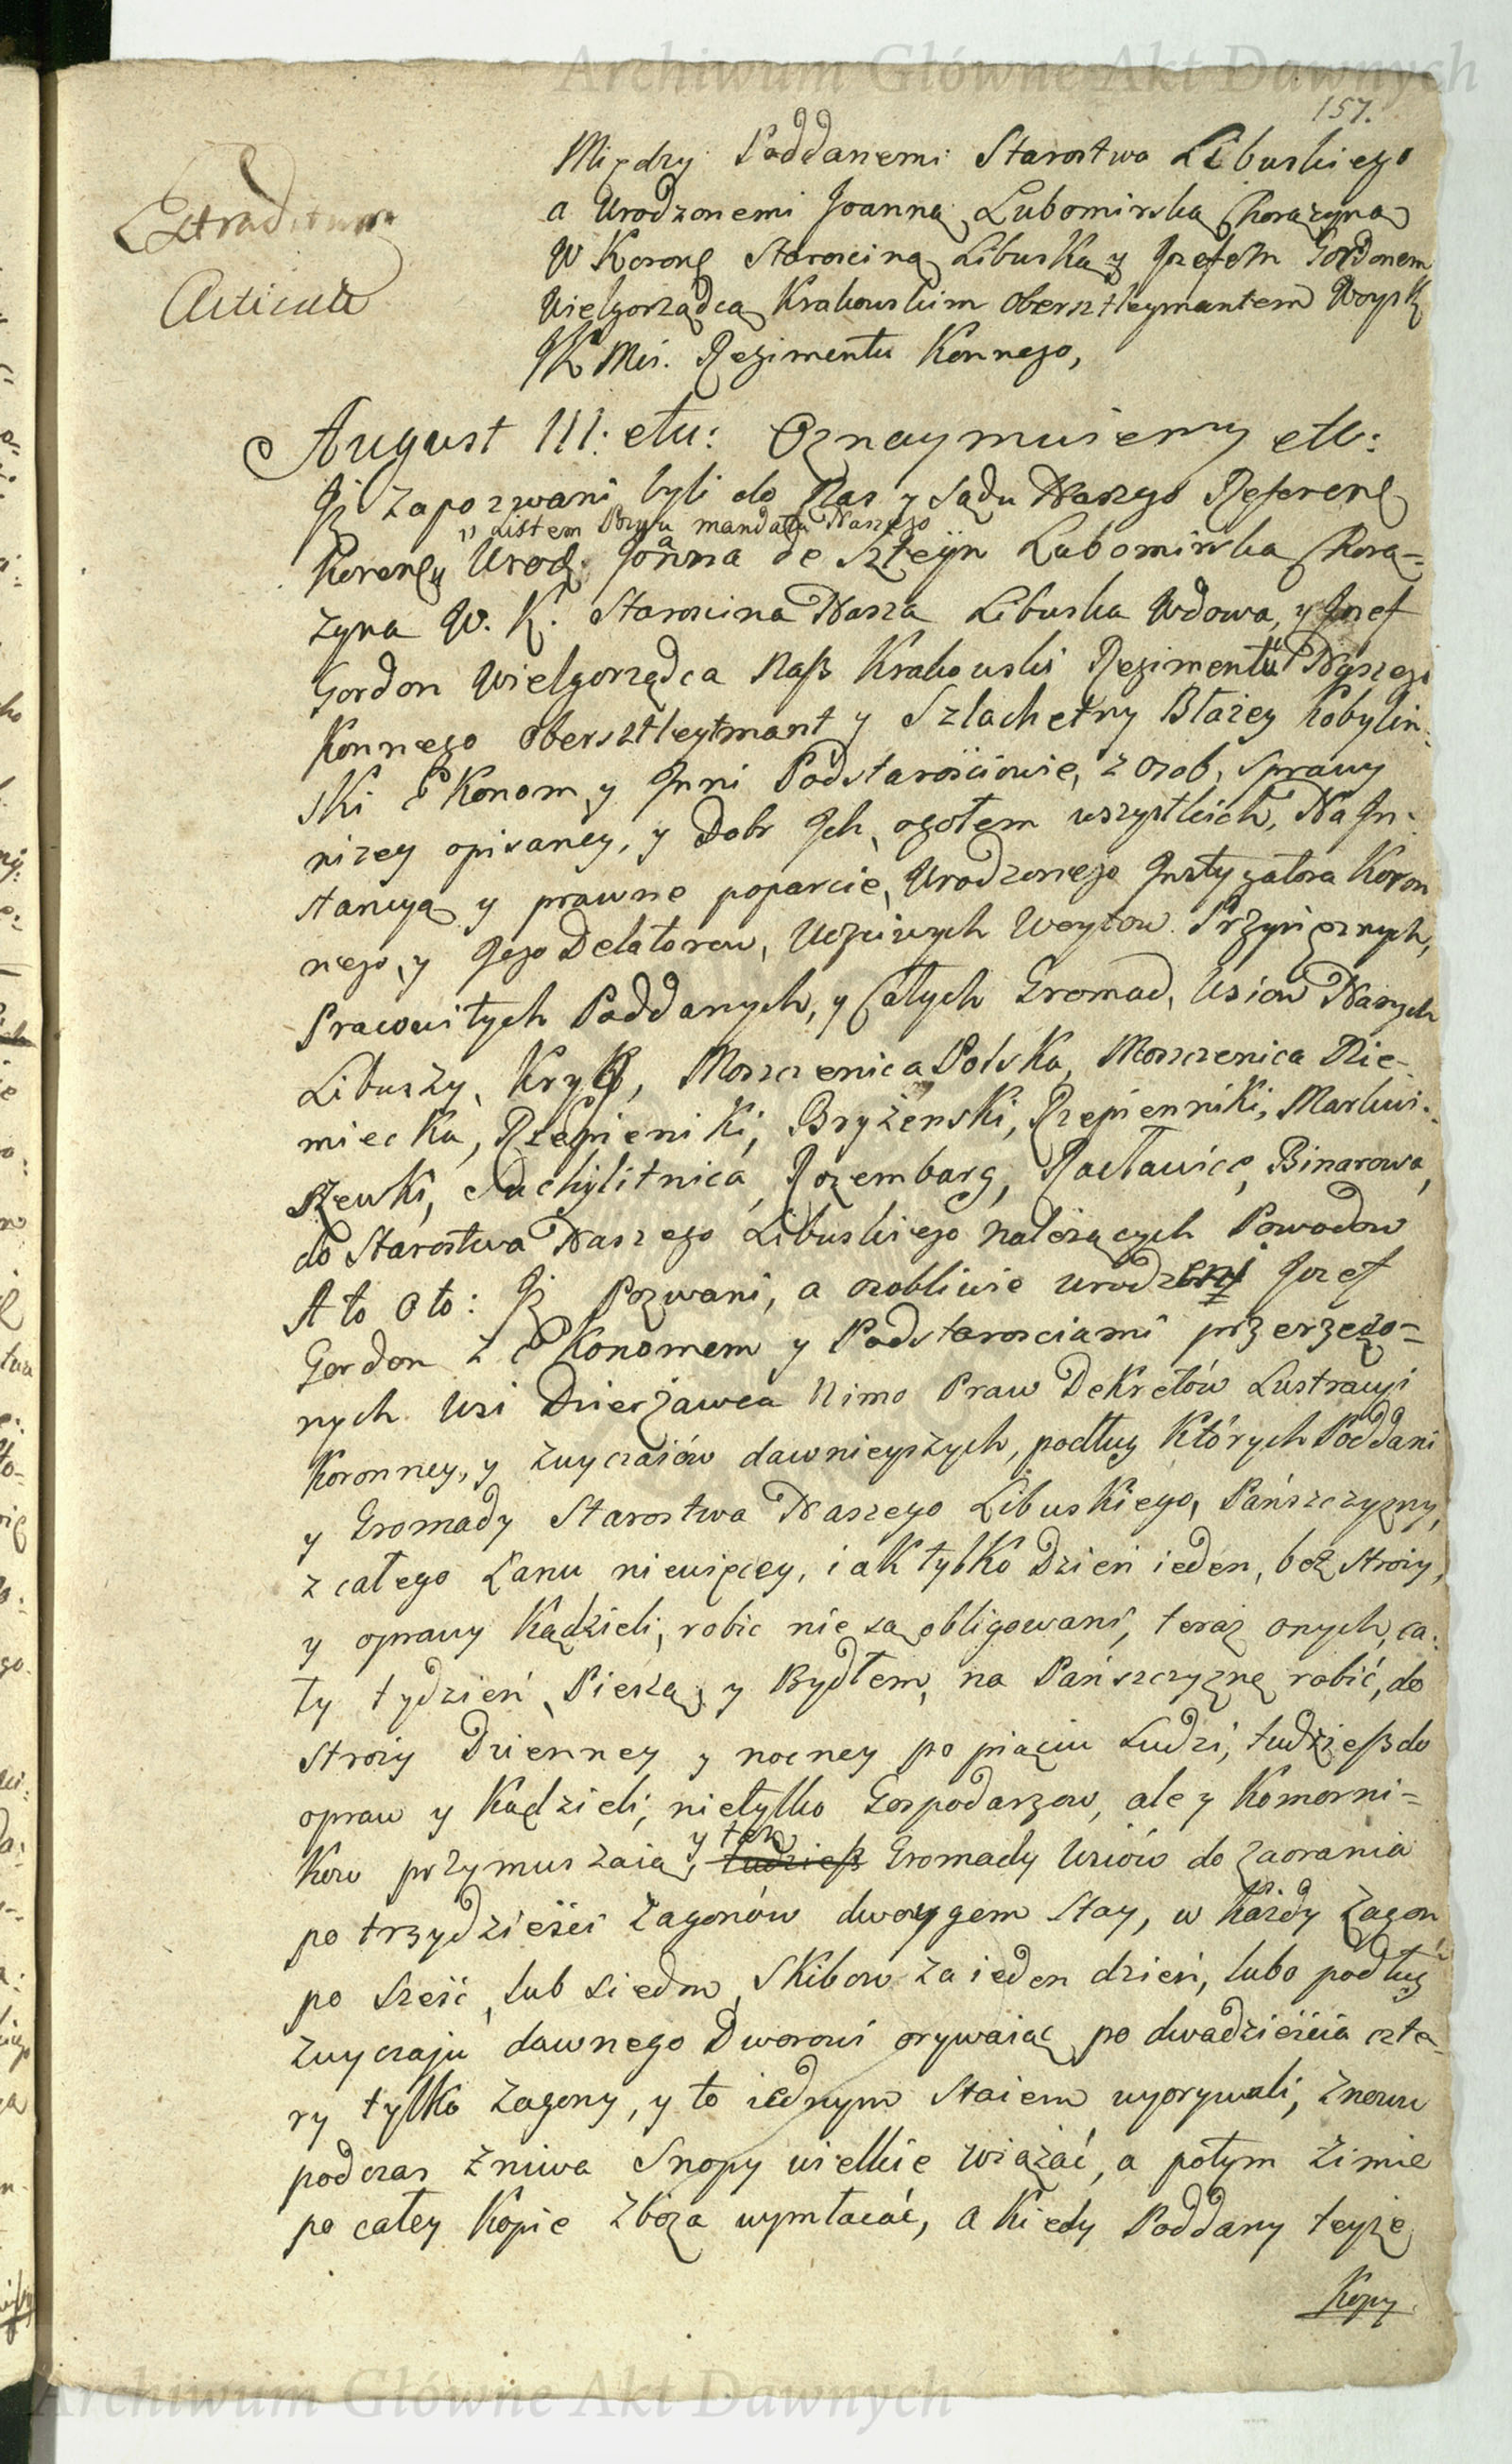 Archiwum Główne Akt Dawnych
157.
Między Poddanemi Starostwa Libuskiego
a Urodzonemi Joanną Lubomirską Chorążyną
W Koronę Starościną Libuską y Jozefem Gordonem
Wielgorządcą Krakowskim Obersztleymantem Woysk
JK Mci. Regimentu Konnego,
Extraditum
Articuli
August III: etu: Oznaymuiemy etc:
Jż zapozwani byli do Nas y Sądu Naszego Referen
y Listem Pozwu mandatu Naszego
Koronęy Urodz. Joanna de Szteyn Lubomirska Chorą-
żyna W. K. Starościna Nasza Libuska Wdowa, y Jozef
Gordon Wielgorządca Naß Krakowski Regimentu Naszego
Konnego Obersztleytmant y Szlachetny Błażey Kobylin-
ski Ekonom y Jnni Podstarościowie, z osob, sprawy
niżey opisaney, y Dobr Jch, ogołem wszystkich, Na Jn-
stancyą y prawne poparcie, Urodzonego Jnstygatora Koron
nego, y Jego Delatorow, Uczciwych Woytow Przysięznych,
Pracowitych Poddanych, y Całych Gromad, Wsiow Naszych
Libuszy, Kryg, Moszczenica Polska, Moszczenica Nie-
miecka, Rzepieniki, Bryżenski, Rzepienniki, Marciwi-
szewski, Suchylitnica, Rozembarg, Racławice, Binarowa,
do Starostwa Naszego Libuskiego należących Powodow
A to o to: Jż Pozwani, a osobliwie urodzeni Jozef
Gordon z Ekonomem y Podstarosciami przerzeczo-
nych Wsi Dzierżawca Nimo Praw Dekretów Lustracyi
Koronney, y zwyczaiów dawnieyszych, podług których Poddani
y Gromady Starostwa Naszego Libuskiego, Pańszczyzny,
z całego Łanu niewięcey, iak tylko Dzień ieden, bez stroży,
y oprawy Kądzieli, robic nie są obligowani, teraz onych, ca-
ły tydzień, Pieszą, y Bydłem, na Pańszczyznę robić, do
stroży Dzienney y nocney po piąciu Ludzi, tudzieß do
opraw y Kądzieli, nietylko Gospodarzow, ale y Komorni-
kow przymuszaią, y też tudzieß Gromady Wsiów do zaorania
po trzydzieści Zagonów dwoygem Stay, w każdy Zagon
po sześć, lub siedm, Skibow za ieden dzień, lubo podług
zwyczaju dawnego Dworowi orywaiąc po dwadzieścia czte-
ry tylko Zagony, y to iednym Staiem uyorywali, znowu
podczas Żniwa Snopy wielkie wiązać, a potym Zimie
po całey Kopie Zboza wymłacać, a Kiedy Poddany teyże
Kopy
Archiwum Główne Akt Dawnych